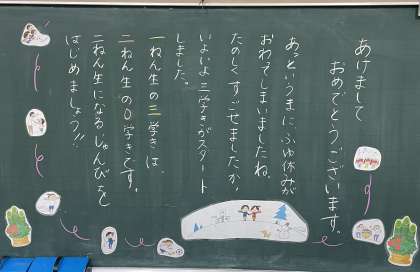 あけまして
おめでとうございます。
あっというまに、ふゆ休みが
おわってしまいましたね。
たのしくすごせましたか？
いよいよ三学きがスタート
しました。
一ねん生の三学きは、
二ねん生の0学きです。
二ねん生になるじゅんびを
はじめましょう!!